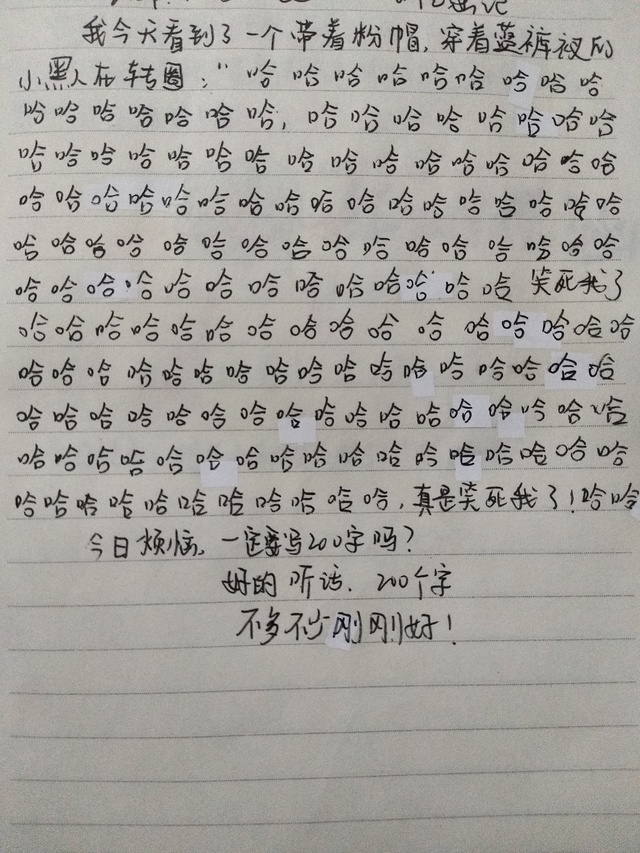 我今天看到了一个带着粉帽,穿着蓝裤衩的
小黑人在转圈:“哈哈哈哈哈哈哈哈哈
哈哈哈哈哈哈哈,哈哈哈哈哈哈哈哈
哈哈哈哈哈哈哈哈哈哈哈哈哈哈哈哈
哈哈哈哈哈哈哈哈哈哈哈哈哈哈哈哈哈
哈哈哈哈哈哈哈哈哈哈哈哈哈哈哈哈
哈哈哈哈哈哈哈哈哈哈哈哈哈 笑死我了
哈哈哈哈哈哈哈哈哈哈哈哈哈哈哈哈
哈哈哈哈哈哈哈哈哈哈哈哈哈哈哈哈哈
哈哈哈哈哈哈哈哈哈哈哈哈哈哈哈哈哈
哈哈哈哈哈哈哈哈哈哈哈哈哈哈哈哈哈
哈哈哈哈哈哈哈哈哈哈哈,真是笑死我了!哈哈
今日烦恼。一定要写200字吗?
好的 听话.200个字
不多不少刚刚好!